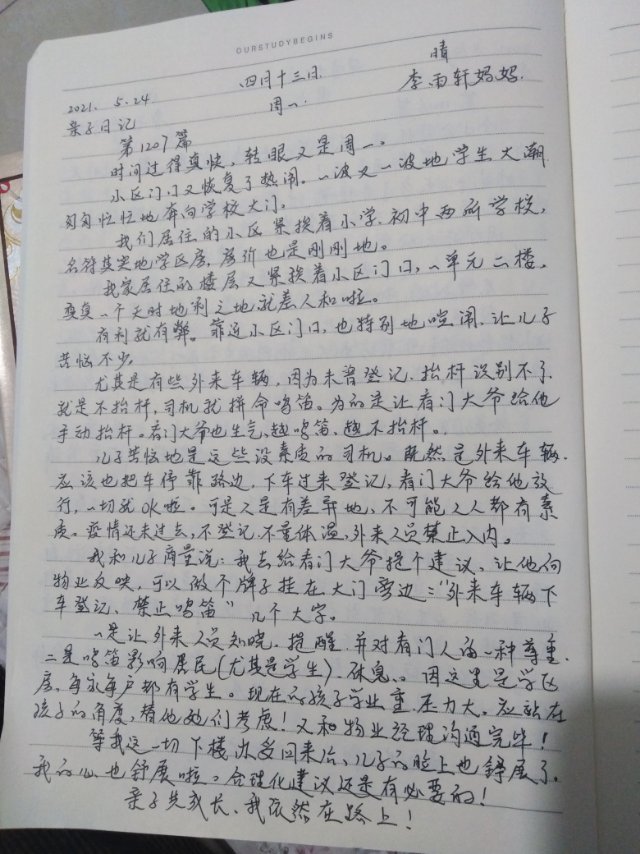 OURSTUDYBEGINS
2021. 5.24 四月十三日. 晴
周一. 李雨轩妈妈.
亲子日记
第1207篇
时间过得真快, 转眼又是周一。
小区门口又恢复了热闹. 一波又一波地学生大潮
匆匆忙忙地奔向学校大门。
我们居住的小区紧挨着小学. 初中两所学校,
名符其实地学区房, 房价也是刚刚地。
我家居住的楼层又紧挨着小区门口, 一单元二楼.
一个天时地利之地就差人和啦。
有利就有弊。靠近小区门口, 也特别地喧闹. 让儿子
苦恼不少。
尤其是有些外来车辆, 因为未曾登记. 抬杆识别不了
就是不抬杆, 司机就拼命鸣笛。为的是让看门大爷给他
手动抬杆。看门大爷也生气, 越鸣笛. 越不抬杆。
儿子苦恼地是这些没素质的司机。既然是外来车辆.
应该也把车停靠路边, 下车过来登记, 看门大爷给他放
行, 一切就OK啦。可是人是有差异地, 不可能人人都有素
质。疫情还未过去, 不登记. 不量体温, 外来人员禁止入内。
我和儿子商量说: 我去给看门大爷提个建议、让他向
物业反映, 可以做个牌子挂在大门旁边: “外来车辆下
车登记、禁止鸣笛” 几个大字。
一是让外来人员知晓. 提醒. 并对看门人员一种尊重.
二是鸣笛影响居民(尤其是学生)休息、因这里是学区
房, 每家每户都有学生。现在的孩子学业重. 压力大。应站在
孩子的角度, 替他她们考虑! 又和物业经理沟通完毕!
等我这一切下楼办妥回来后、儿子的脸上也舒展了.
我的心也舒展啦。合理化建议还是有必要的!
亲子共成长、我依然在路上!